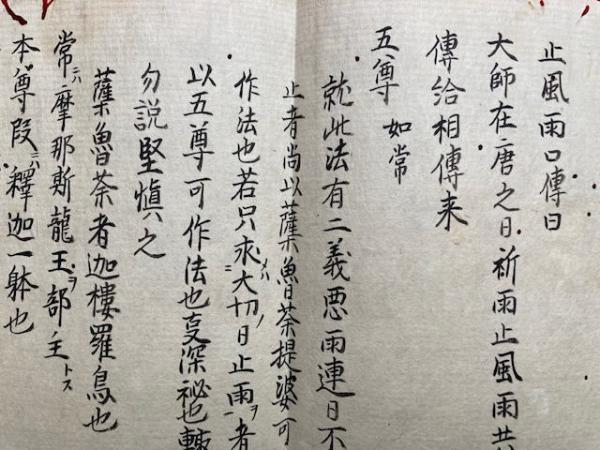 止風雨口傳曰
大師在唐之日祈雨止風雨共
傳給相傳来
五尊 如常
就此法有二義悪雨連日不
止者尚以薩魯荼提婆可
作法也若只求ハ大切ノ日止雨ヲ者
以五尊可作法也更深祕也輙
勿説堅慎々之
薩魯荼者迦樓羅鳥也
常ニハ摩那斯龍王ヲ部主トス
本尊段ニハ釋迦一躰也